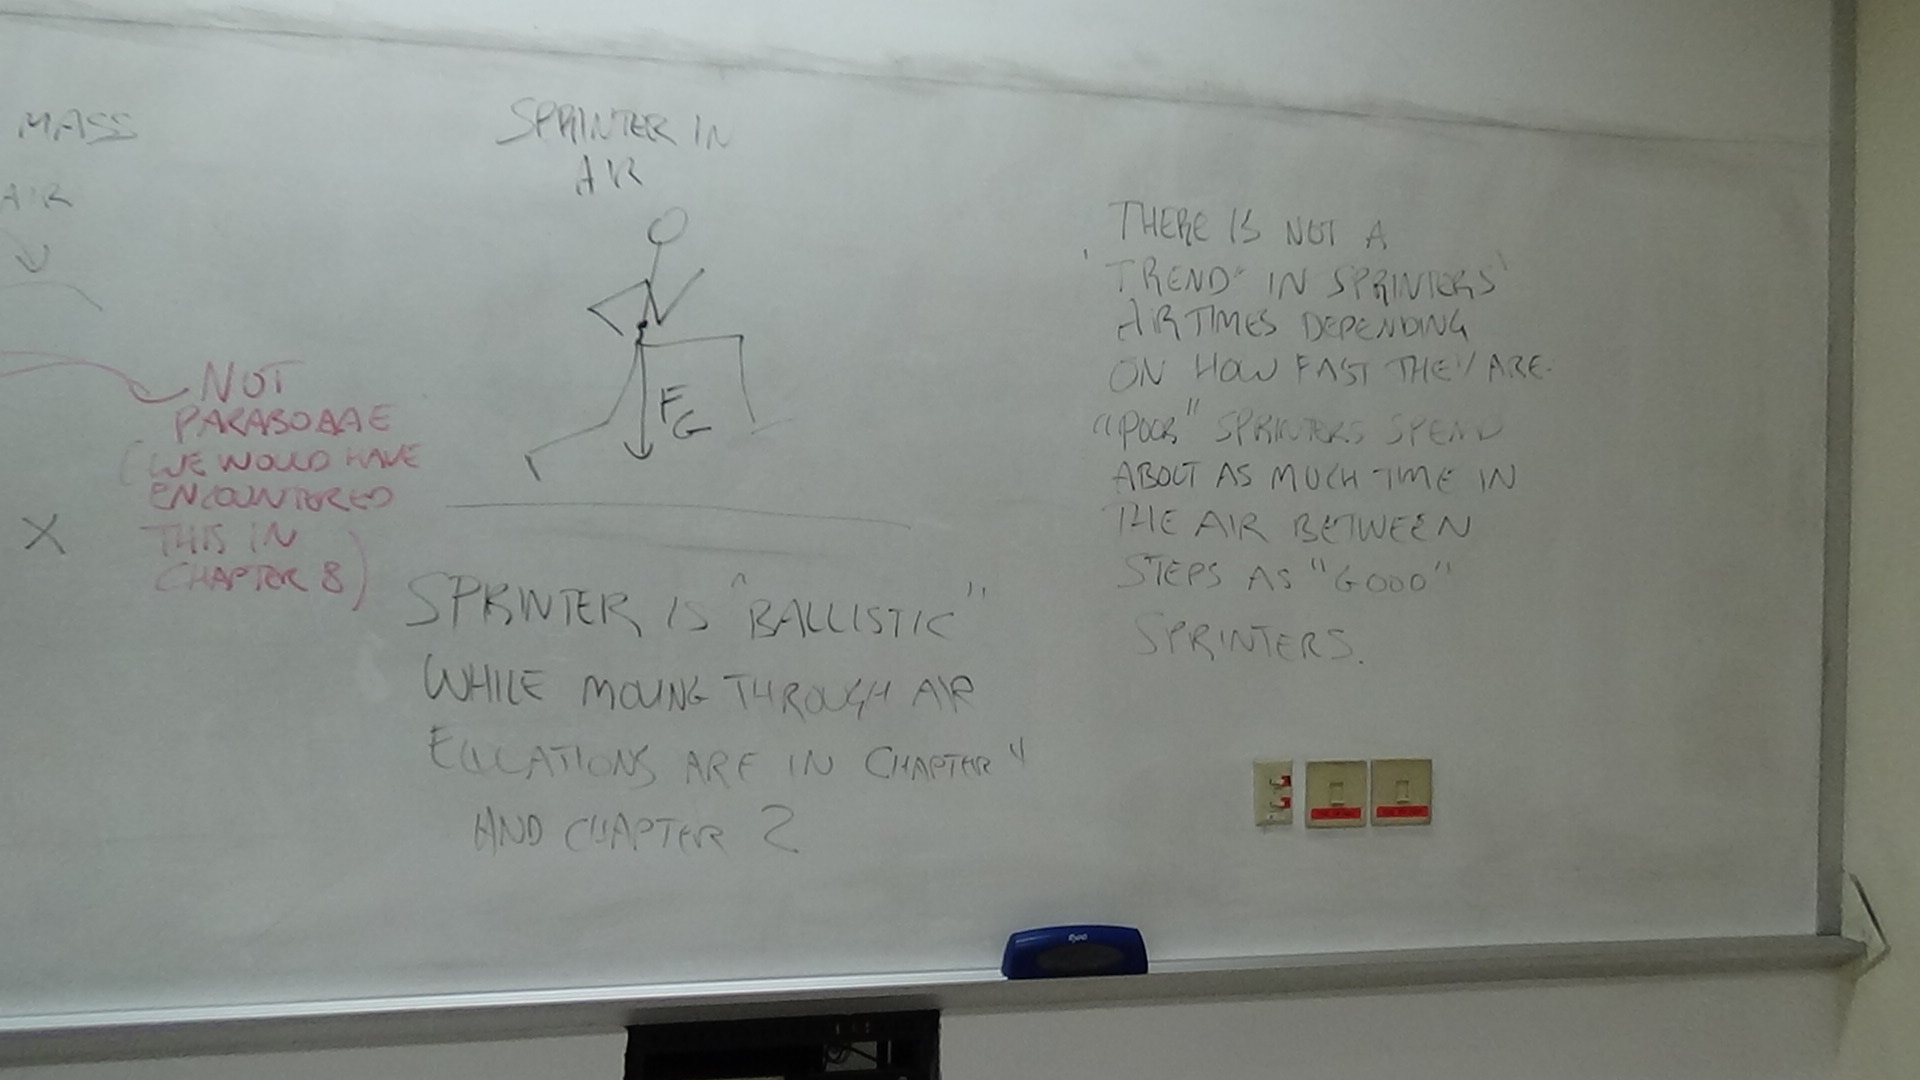 MASS
AIR
X
NOT
PARABOLAE
(WE WOULD HAVE
ENCOUNTERED
THIS IN
CHAPTER 8)
SPRINTER IN
AIR
FG
SPRINTER IS "BALLISTIC"
WHILE MOVING THROUGH AIR
EQUATIONS ARE IN CHAPTER 4
AND CHAPTER 2
THERE IS NOT A
"TREND" IN SPRINTERS'
AIR TIMES DEPENDING
ON HOW FAST THEY ARE.
"POOR" SPRINTERS SPEND
ABOUT AS MUCH TIME IN
THE AIR BETWEEN
STEPS AS "GOOD"
SPRINTERS.
Expo